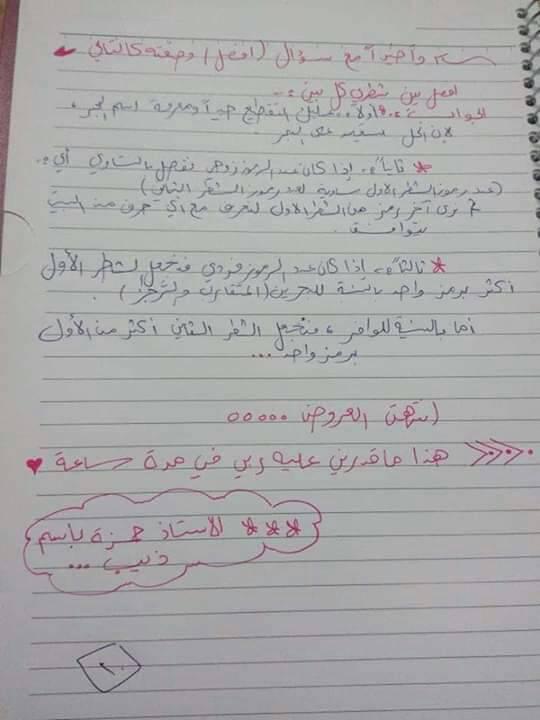 وأخيراً مع سؤال (افصل) وصفته كالتالي
افصل بين شطري كل بيت :-
الجواب :- * أولاً ، نحلل التقطيع جيداً ومعرفة اسم البحر ،
لان الحل سيعتمد على البحر .
* ثانياً :- إذا كان عدد الرموز زوجي نفصل بالتساوي أي :
(عدد رموز الشطر الاول مساوية لعدد رموز الشطر الثاني)
ثم نرى آخر رمز من الشطر الاول لنعرف مع أي حرف من البيت
يتوافق
* ثالثاً :- إذا كان عدد الرموز فردي فنجعل الشطر الأول
أكثر برمز واحد بالنسبة للبحرين (المتقارب والرجز) .
أما بالنسبة للوافر ، فنجعل الشطر الثاني أكثر من الأول
برمز واحد ...
انتهى العروض ٥٥٥٥٥
هذا ما قدرني عليه ربي في مدة ساعة
*** الاستاذ حمزة باسم
ذيب ...